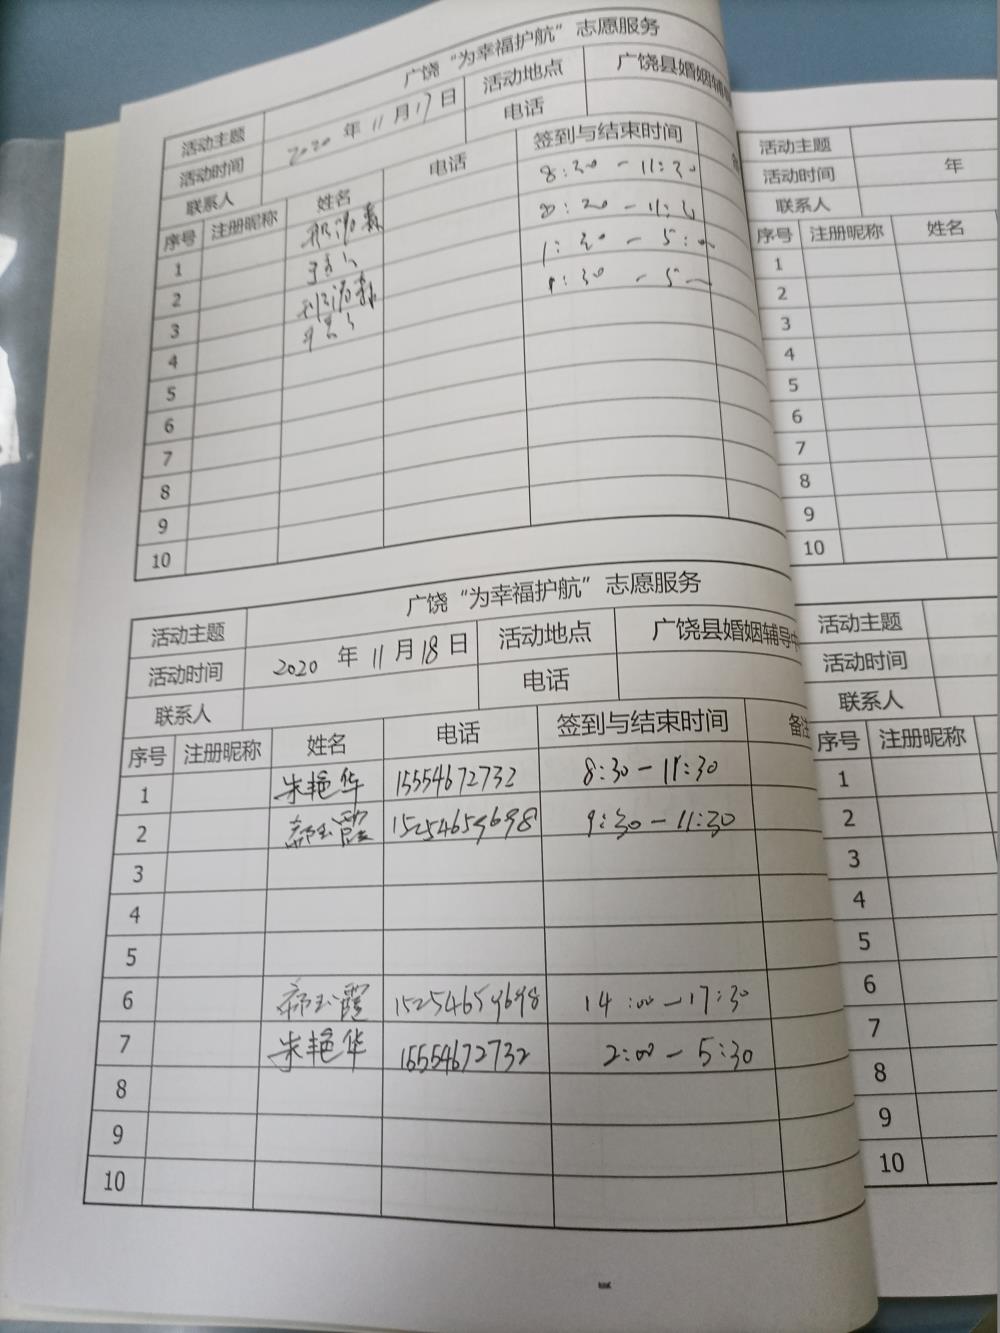 广饶“为幸福护航”志愿服务
活动主题
活动时间 2020 年 11 月 17 日 活动地点 广饶县婚姻辅
联系人 电话
序号 注册昵称 姓名 电话 签到与结束时间
1 8:30-11:30
2
3
4
5
6
7
8
9
10
广饶“为幸福护航”志愿服务
活动主题
活动时间 2020 年 11 月 18 日 活动地点 广饶县婚姻辅导
联系人 电话
序号 注册昵称 姓名 电话 签到与结束时间 备注
1 朱艳华 15554672732 8:30-11:30
2 郝玉霞 15254659698 9:30-11:30
3
4
5
6 郝玉霞 15254659698 14:00-17:30
7 朱艳华 15554672732 2:00-5:30
8
9
10
活动主题
活动时间 年
联系人
序号 注册昵称 姓名
1
2
3
4
5
6
7
8
9
10
活动主题
活动时间
联系人
序号 注册昵称
1
2
3
4
5
6
7
8
9
10